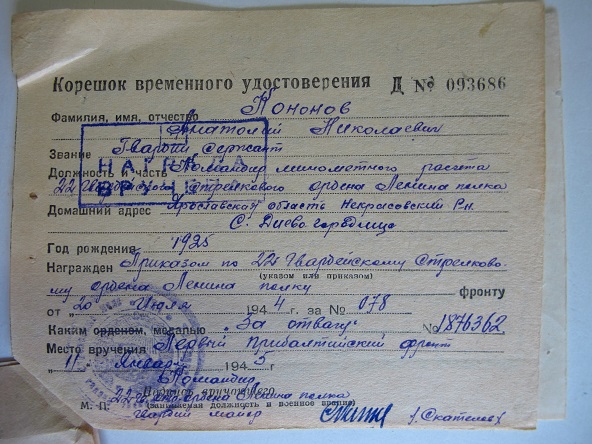 Корешок временного удостоверения Д № 093686
Фамилия, имя, отчество Кононов
Анатолий Николаевич
Звание Гвардии сержант
НАГРАДА
ВРУЧЕНА
Должность и часть Командир минометного расчета
22 Гвардейского Стрелкового ордена Ленина полка
Домашний адрес Ярославская область Некрасовский Р-н.
С. Диево-городище
Год рождения 1925
Награжден Приказом по 22 Гвардейскому Стрелково-
(указом или приказом)
му ордена Ленина полку фронту
от "20" Июля 1944 г. за № 078
Каким орденом, медалью "За отвагу" № 1876362
Место вручения Первый Прибалтийский фронт
"11" Января 1945 г
Командир
Подпись вручающего
22 ордена Ленина полка
М. П. (занимаемая должность и военное звание)
Гвардии майор